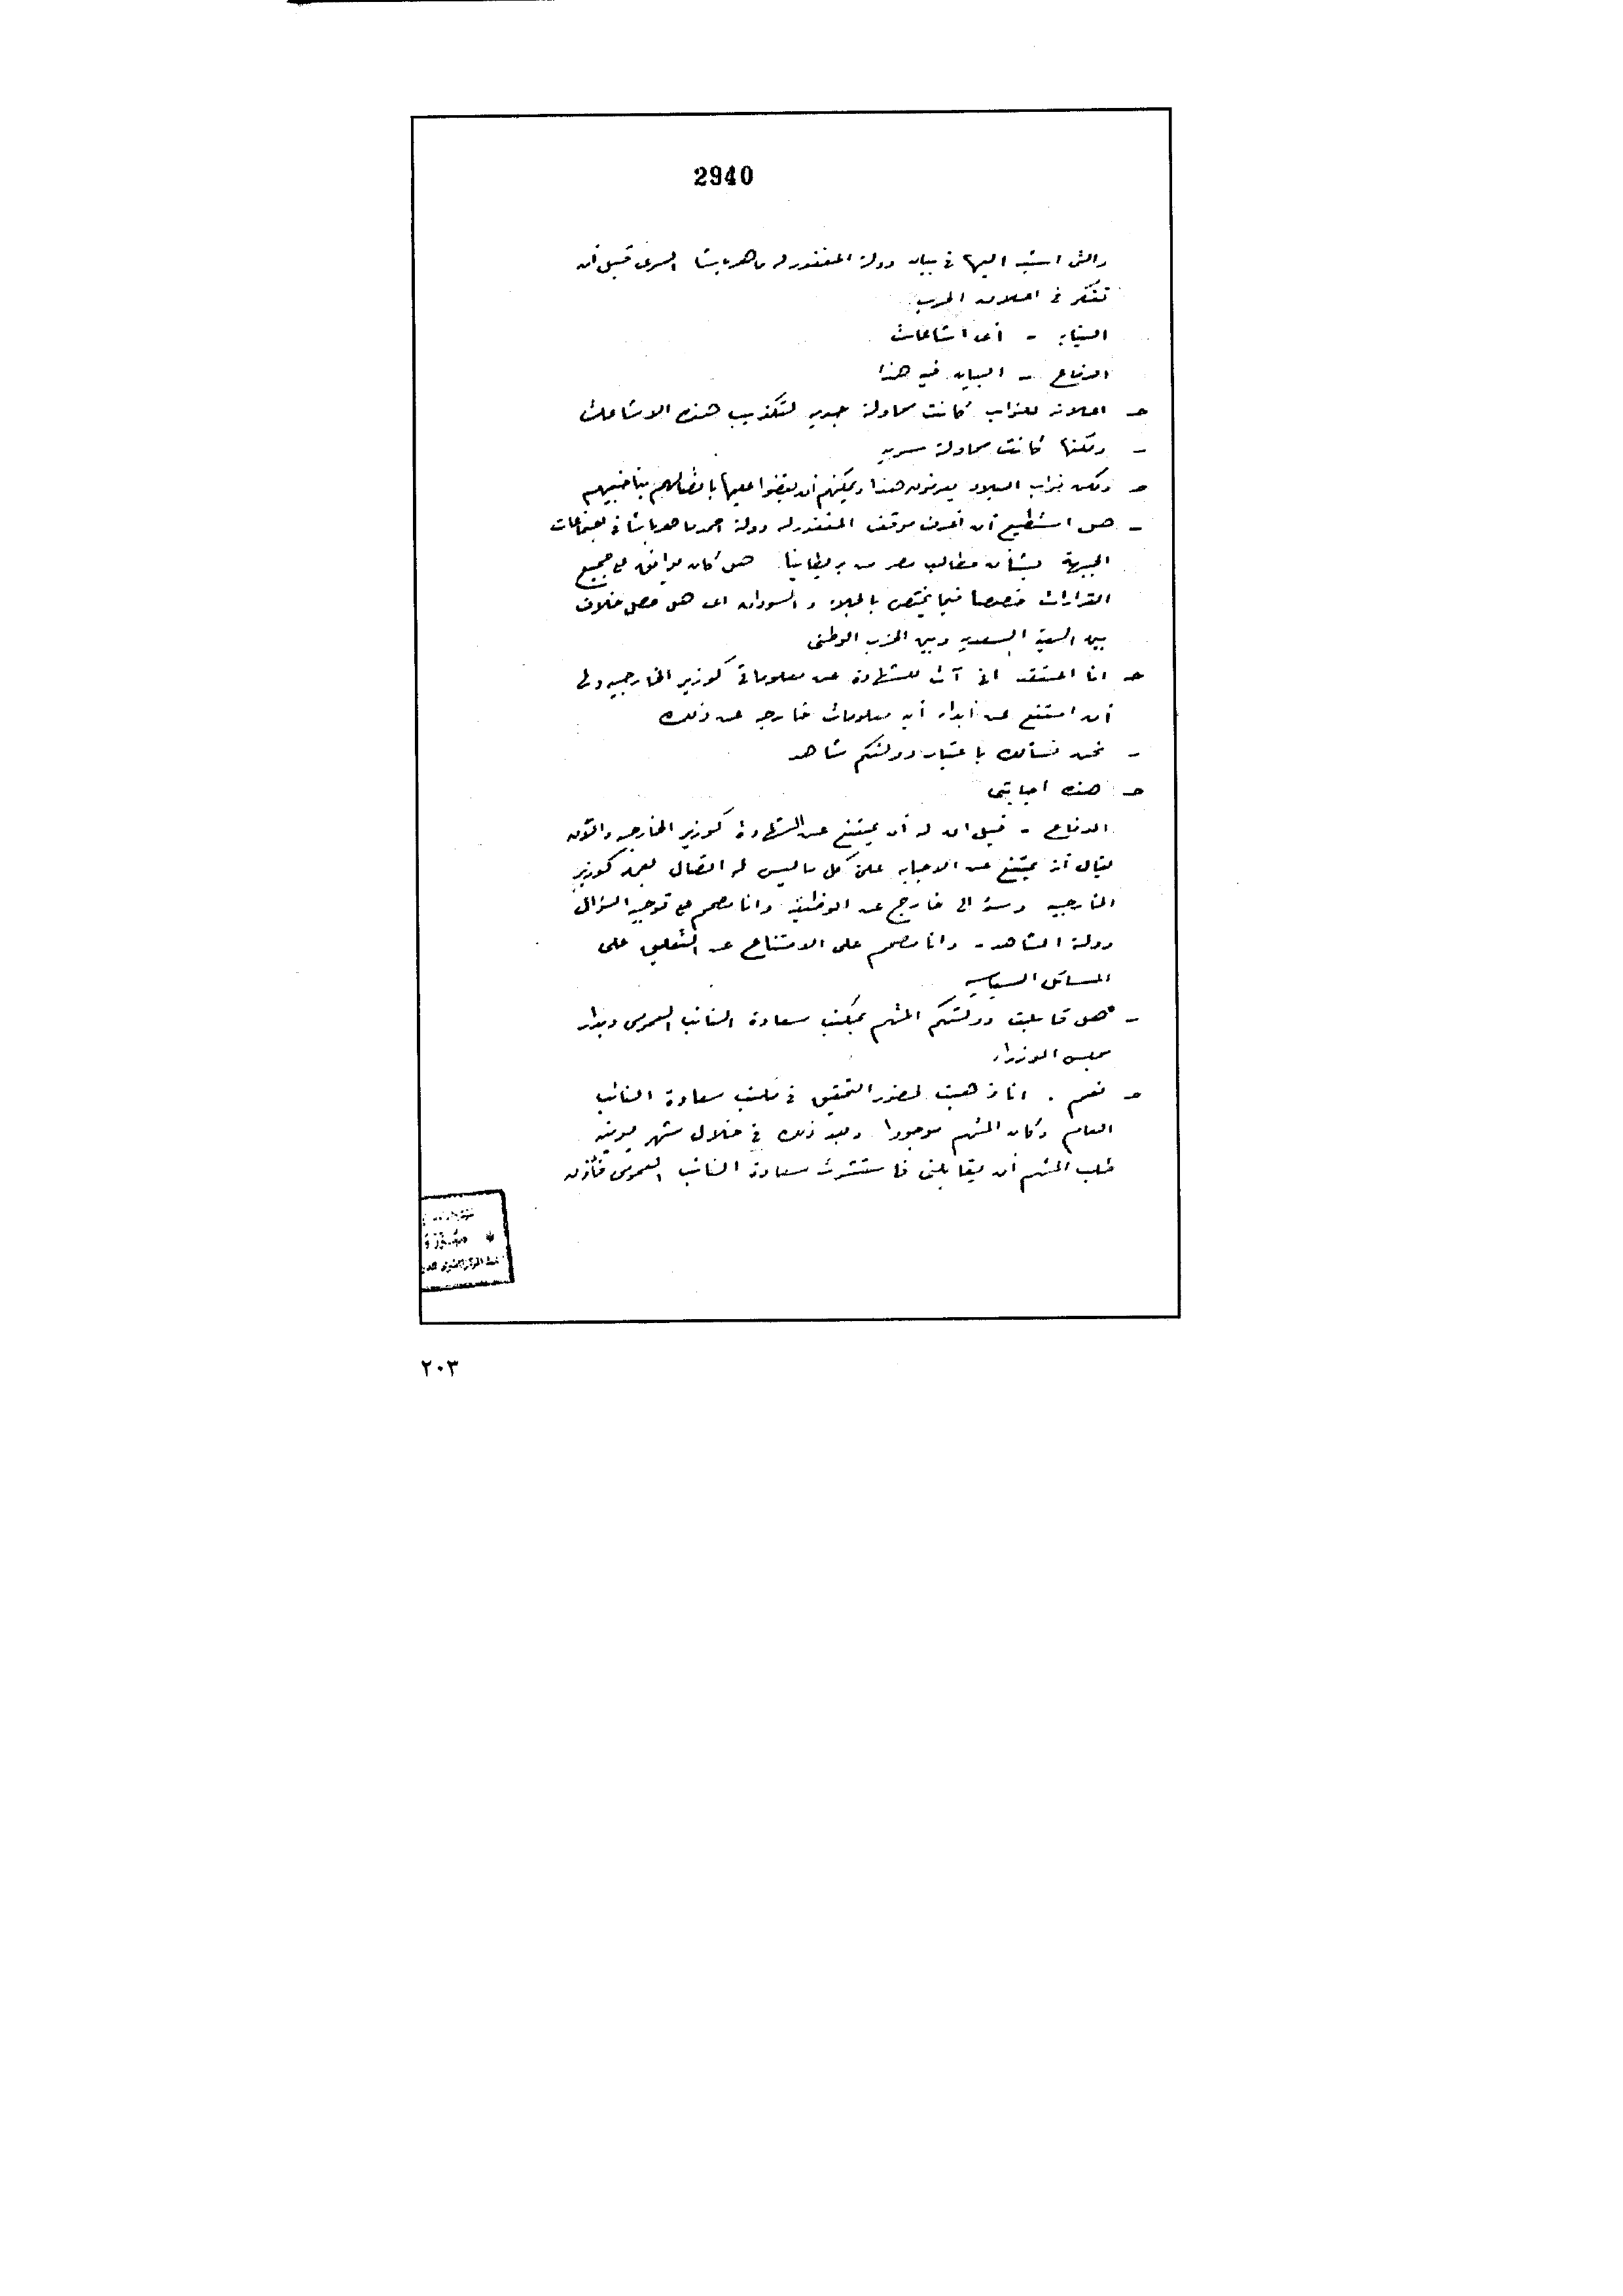 2940
والتى اشير اليها فى بيان دولة المغفور له ماهر باشا السرى قبل أن
تفكر فى اعلان الحرب
النيابة - أى اشاعات
الدفاع - البيان فيه هذا
ج اعلانه للنواب كانت محاولة جديه لتكذيب هذه الاشاعات
- ولكنها كانت محاولة سريه
ج ولكن نواب البلاد يعرفون هذا ويمكنهم أن يقضوا عليها باتصالهم بناخبيهم
- هل استطيع أن أعرف موقف المغفور له دولة احمد ماهر باشا فى اجتماعات
الجبهة بشأن مطالب مصر من بريطانيا هل كان موافق على جميع
القرارات خصوصا فيما يختص بالجلاء والسودان اى هل حصل خلاف
بين الهيئة السعديه وبين الحزب الوطنى
ج انا اعتقد انى آت للشهادة عن معلوماتى كوزير الخارجيه ولى
أن امتنع عن أبداء أيه معلومات خارجه عن ذلك
- نحن نسألك باعتبار دولتكم شاهد
ج هذه اجابتى
الدفاع - قيل ان له أن يمتنع عن الشهادة كوزير الخارجيه والآن
يقال أن يمتنع عن الاجابه على كل ما ليس له اتصال بعمله كوزير
الخارجيه وسؤالى خارج عن الوظيفه وانا مصمم على توجيه السؤال
دولة الشاهد - وانا مصمم على الامتناع عن التعليق على
المسائل السياسيه
- هل قابلت دولتكم المتهم بمكتب سعادة النائب العمومى وبدار
مجلس الوزراء
ج نعم . انا ذهبت لحضور التحقيق فى مكتب سعادة النائب
العام وكان المتهم موجودا وبعد ذلك فى خلال شهر يونيه
طلب المتهم أن يقابلنى فاستشرت سعادة النائب العمومى فأذن له
٢٠٣